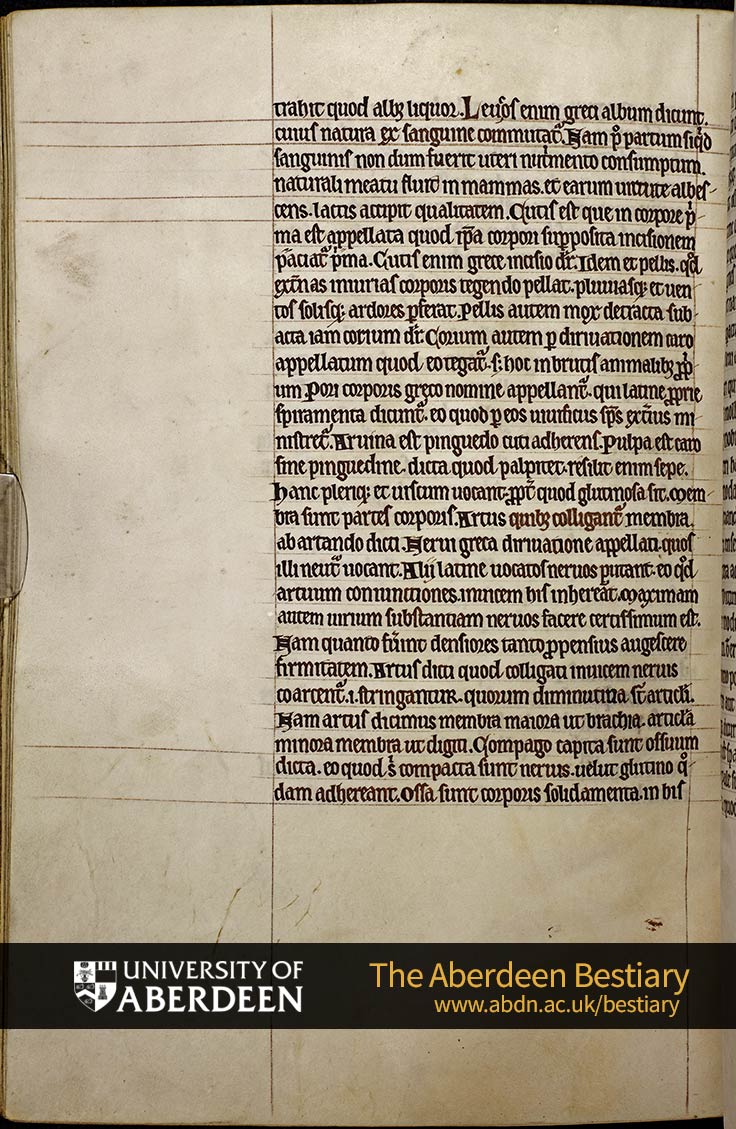 trahit quod albꝫ liquor. Leuꝯos enim greci album dicunt.
cuius natura ex sanguine commutat᷑. Nam p̾ partum siqͥd
sanguinis non dum fuerit uteri nutͥmento consumptum.
naturali meatu fluit in mammas. et earum uirtute albes-
cens. lactis accipit qualitatem. Cutis est que in corpore pͥ-
ma est appellata quod ip̅a corpori supposita incisionem
p̅aciat᷑ pͥma. Cutis enim grece incisio dr̅. Idem et pellis. qd̅
ext̾nas iniurias corporis tegendo pellat. pluuiasqꝫ et uen
tos solisqꝫ ardores ꝑferat. Pellis autem mox detracta sub-
acta iam corium dr̅. Corium autem ꝑ diriuationem caro
appellatum quod eo tegat᷑. sꝫ hoc in brutis animalibꝫ ꝓp̅-
um. Pori corporis greco nomine appellant᷑. qui latine ꝓprie
spiramenta dicunt᷑. eo quod ꝑ eos uiuificus sp̅s ext̾ius mi-
nistret᷑. Aruina est pinguedo cuti adherens. Pulpa est caro
sine pinguedine. dicta quod palpitet. resilit enim sepe.
hanc pleriqꝫ et uiscum uocant. ꝓpt̾ quod glutinosa sit. Mem-
bra sunt partes corporis. Artus quibꝫ colligant᷑ membra.
ab artando dicti. Nerui greca diriuatione appellati. quos
illi neut᷑ uocant. Alii latine uocatos neruos putant. eo qd̅
artuum coniunctiones. inuicem his inhereāt. Maximam
autem uirium substantiam neruos facere certissimum est.
Nam quanto fu̾int densiores tanto ꝓpensius augescere
firmitatem. Artus dicti quod colligati inuicem neruis
coarcent᷑. .i. stringantur. quorum diminutiua st̅ articli̅.
Nam artus dicimus membra maiora ut brachia. articl̅a
minora membra ut digiti. Compago capita sunt ossium
dicta. eo quod s̅ compacta sunt neruis. uelut glutino qͦ-
dam adhereant. Ossa sunt corporis solidamenta. in his
UNIVERSITY OF
ABERDEEN
The Aberdeen Bestiary
www.abdn.ac.uk/bestiary